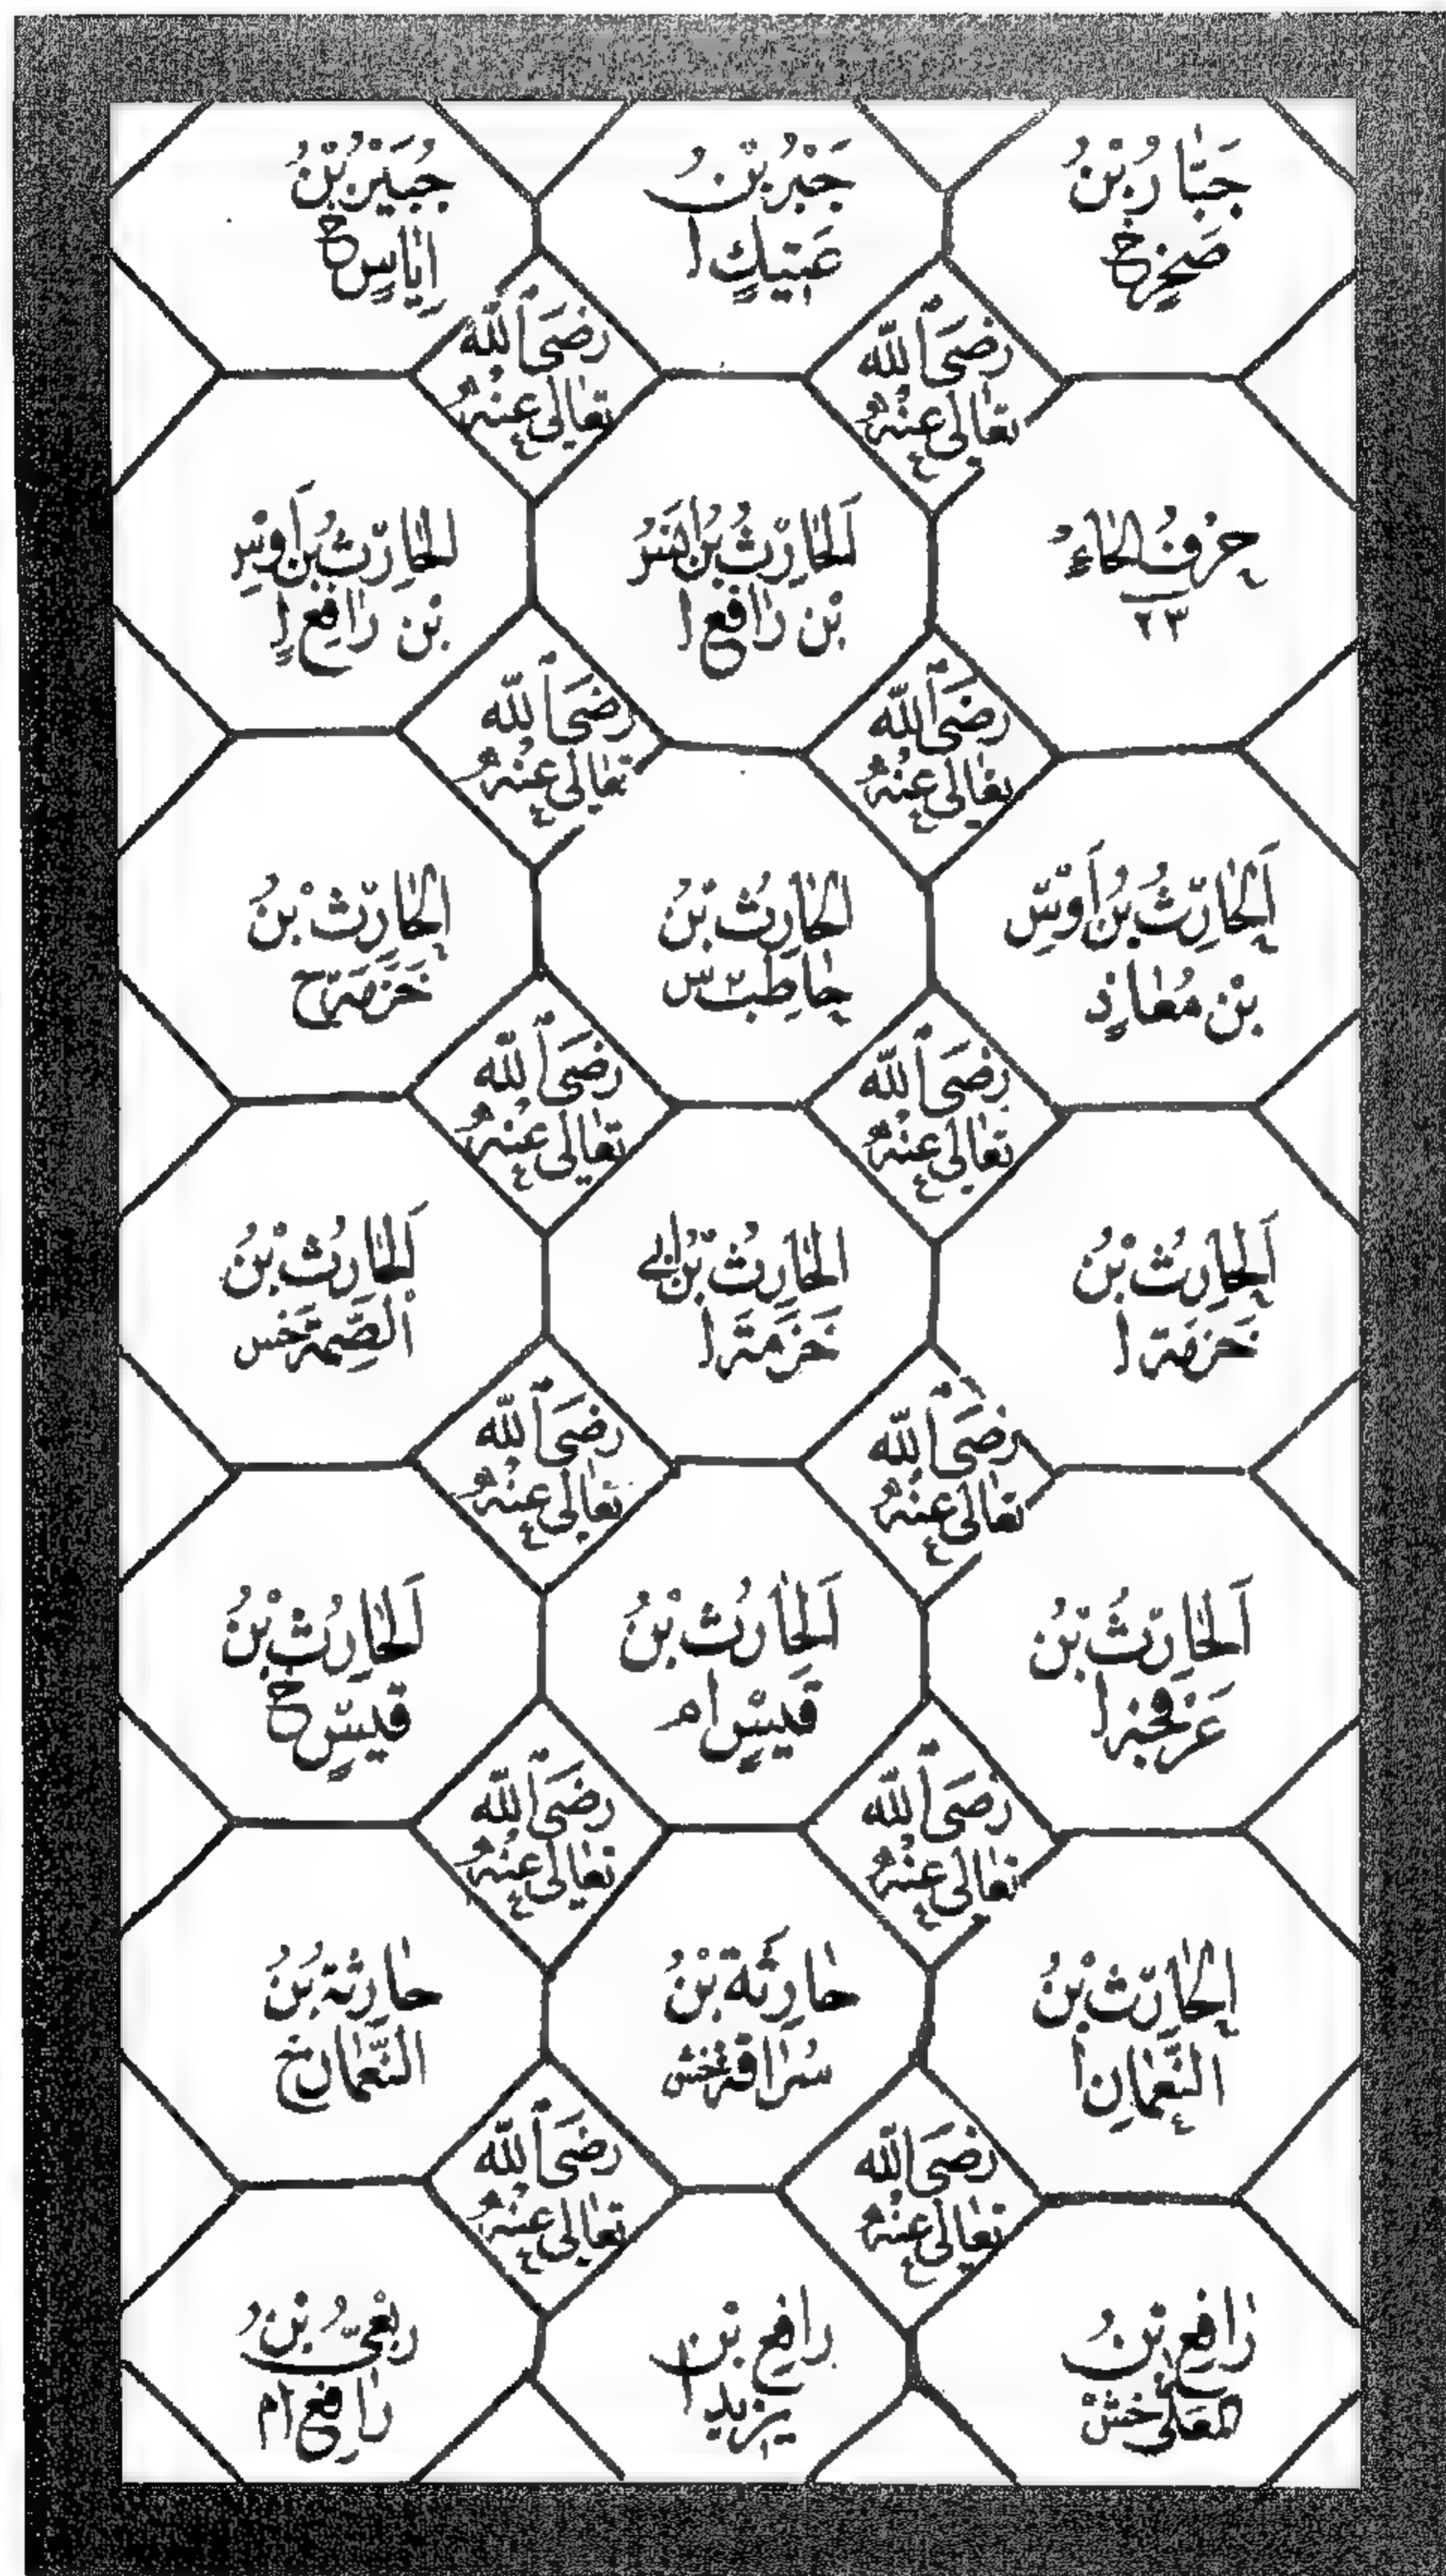 جَبَّارُ بْنُ
صَخْرٍ خ
جَبْرُ بْنُ
عَتِيكٍ ا
جُبَيْرُ بْنُ
اِيَاسٍ خ
رَضِيَ اللّٰهُ
تَعَالٰى عَنْهُ
رَضِيَ اللّٰهُ
تَعَالٰى عَنْهُ
حَرْفُ الْحَاءِ
٢٣
اَلْحَارِثُ بْنُ اَنَسِ
بْنِ رَافِعٍ ا
اَلْحَارِثُ بْنُ اَوْسِ
بْنِ رَافِعٍ ا
رَضِيَ اللّٰهُ
تَعَالٰى عَنْهُ
رَضِيَ اللّٰهُ
تَعَالٰى عَنْهُ
اَلْحَارِثُ بْنُ اَوْسِ
بْنِ مُعَاذٍ
اَلْحَارِثُ بْنُ
حَاطِبٍ ٢ س
اَلْحَارِثُ بْنُ
خَزَمَةَ خ
رَضِيَ اللّٰهُ
تَعَالٰى عَنْهُ
رَضِيَ اللّٰهُ
تَعَالٰى عَنْهُ
اَلْحَارِثُ بْنُ
خَزَمَةَ ا
اَلْحَارِثُ بْنُ اَبِي
خَزَمَةَ ا
اَلْحَارِثُ بْنُ
الصِّمَّةِ خس
رَضِيَ اللّٰهُ
تَعَالٰى عَنْهُ
رَضِيَ اللّٰهُ
تَعَالٰى عَنْهُ
اَلْحَارِثُ بْنُ
عَرْفَجَةَ ا
اَلْحَارِثُ بْنُ
قَيْسٍ ام
اَلْحَارِثُ بْنُ
قَيْسٍ خ
رَضِيَ اللّٰهُ
تَعَالٰى عَنْهُ
رَضِيَ اللّٰهُ
تَعَالٰى عَنْهُ
اَلْحَارِثُ بْنُ
النُّعْمَانِ ا
حَارِثَةُ بْنُ
سُرَاقَةَ خش
حَارِثَةُ بْنُ
النُّعْمَانِ خ
رَضِيَ اللّٰهُ
تَعَالٰى عَنْهُ
رَضِيَ اللّٰهُ
تَعَالٰى عَنْهُ
رَافِعُ بْنُ
الْمُعَلّٰى خش
رَافِعُ بْنُ
يَزِيدَ ا
رِبْعِيُّ بْنُ
رَافِعٍ ام